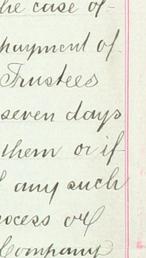 the case of
payment of
Trustees
seven days
them or if
any such
process or
Company